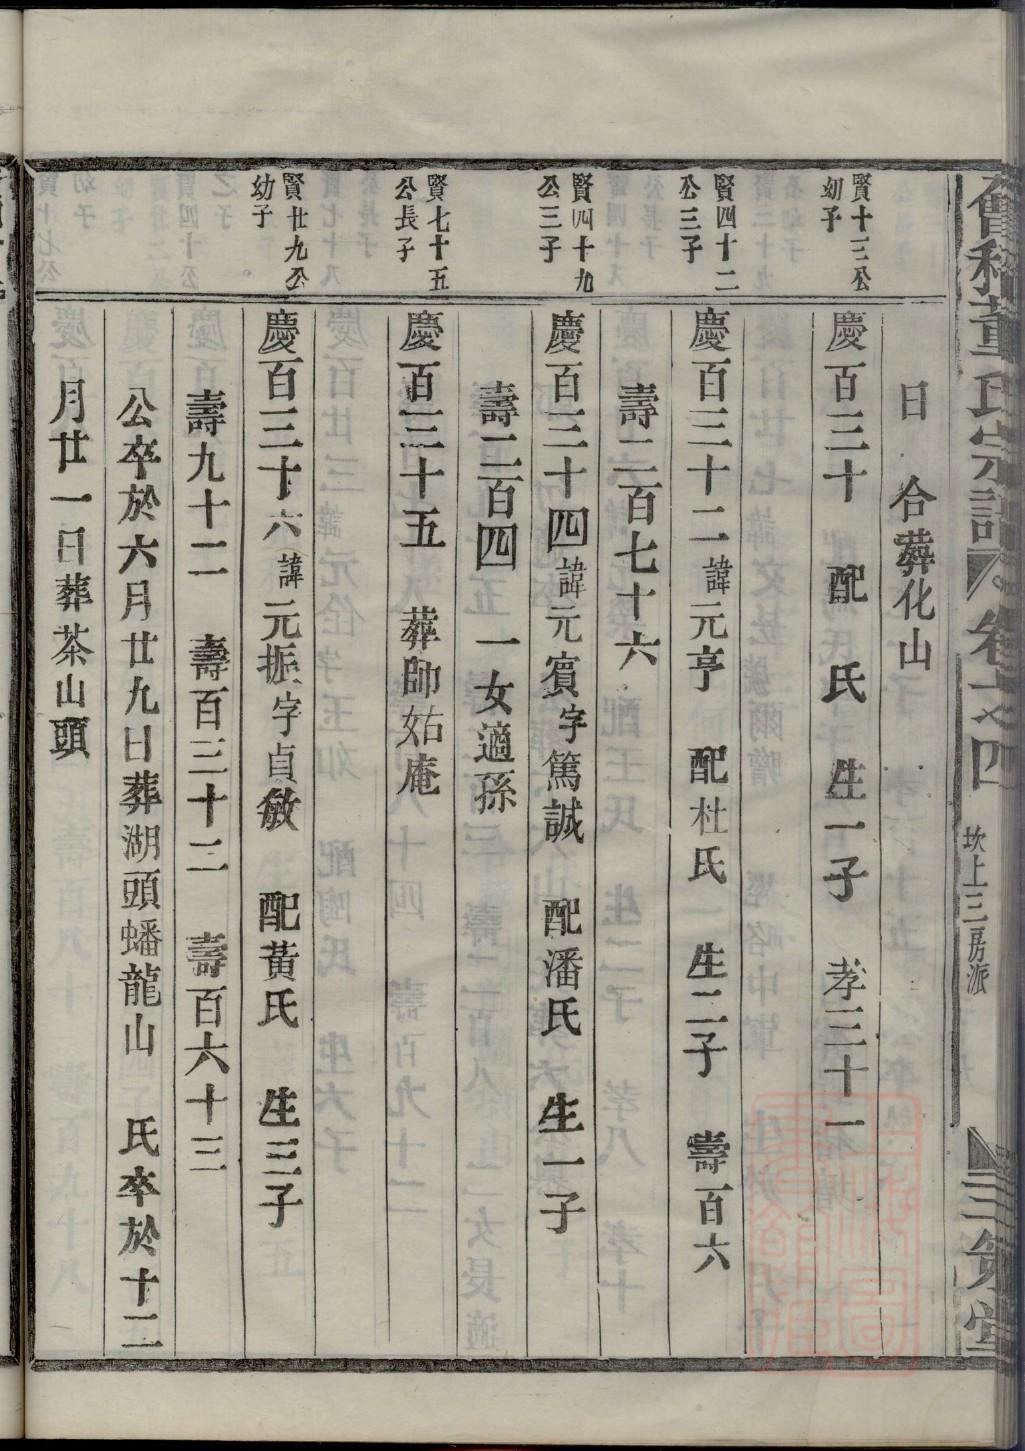 會稽董氏宗譜 卷 之四 坎上三房派 三策堂
日 合葬化山
賢十三公
幼子
慶百三十 配 氏 生一子 孝三十一
賢四十二
公三子
慶百三十二諱元亨 配杜氏 生二子 壽百六
壽二百七十六
賢四十九
公三子
慶百三十四諱元賓字篤誠 配潘氏 生一子
壽二百四 一女適孫
賢七十五
公長子
慶百三十五 葬師姑庵
賢廿九公
幼子
慶百三十六諱元振字貞敏 配黃氏 生三子
壽九十二 壽百三十二 壽百六十三
公卒於六月廿九日葬湖頭蟠龍山 氏卒於十二
月廿一日葬茶山頭